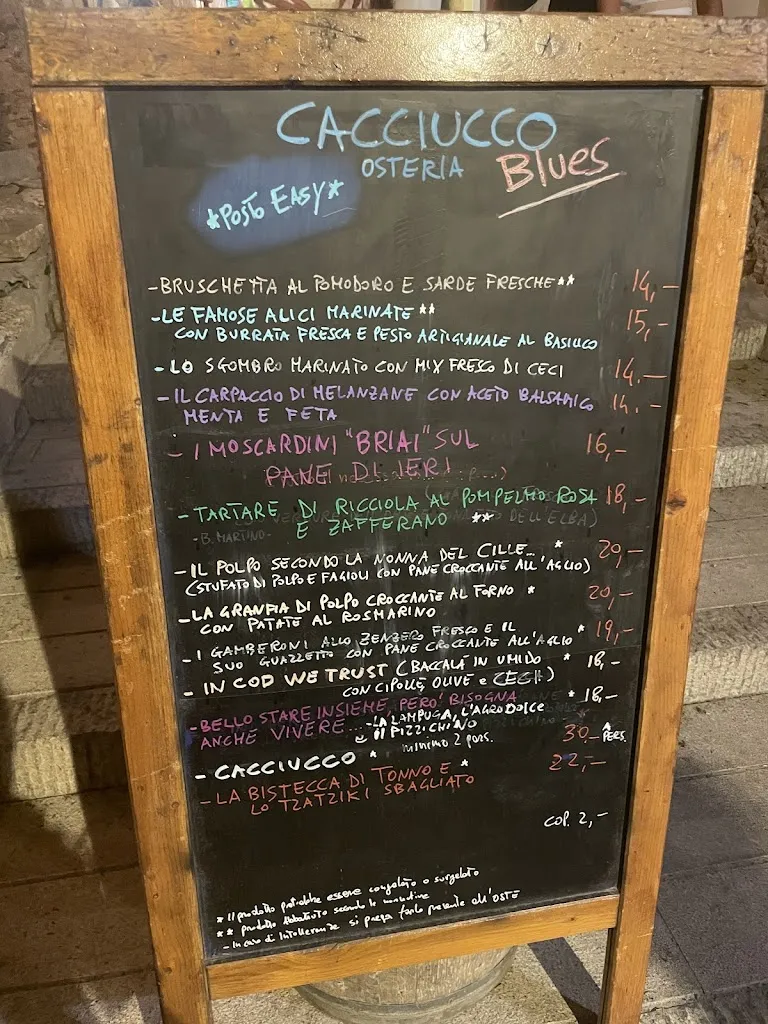 CACCIUCCO
OSTERIA
Blues
*POSTO EASY*
- BRUSCHETTA AL POMODORO E SARDE FRESCHE** 14,-
- LE FAMOSE ALICI MARINATE **
CON BURRATA FRESCA E PESTO ARTIGIANALE AL BASILICO 15,-
- LO SGOMBRO MARINATO CON MIX FRESCO DI CECI 14.-
- IL CARPACCIO DI MELANZANE CON ACETO BALSAMICO 14.-
MENTA E FETA
- I MOSCARDINI "BRIAI" SUL 16,-
PANE DI IERI
- TARTARE DI RICCIOLA AL POMPELMO ROSA 18,-
E ZAFFERANO **
DELL'ELBA)
- B. MARTINO -
- IL POLPO SECONDO LA NONNA DEL CILLE... * 20,-
(STUFATO DI POLPO E FAGIOLI CON PANE CROCCANTE ALL'AGLIO)
- LA GRANFIA DI POLPO CROCCANTE AL FORNO * 20,-
CON PATATE AL ROSMARINO
- I GAMBERONI ALLO ZENZERO FRESCO E IL * 19,-
SUO GUAZZETTO CON PANE CROCCANTE ALL'AGLIO
- IN COD WE TRUST (BACCALÀ IN UMIDO * 18,-
CON CIPOLLE, OLIVE E CECI)
- BELLO STARE INSIEME PERO' BISOGNA * 18,-
ANCHE VIVERE... - LA LAMPUGA, L'AGRODOLCE
E IL PIZZICHINO
- CACCIUCCO * minimo 2 pers. 30,- A PERS.
- LA BISTECCA DI TONNO E * 22,-
LO TZATZIKI SBAGLIATO
COP. 2,-
* Il prodotto potrebbe essere congelato o surgelato
** prodotto Abbattuto secondo le normative
- In caso di Intolleranze si prega farlo presente all'OSTE